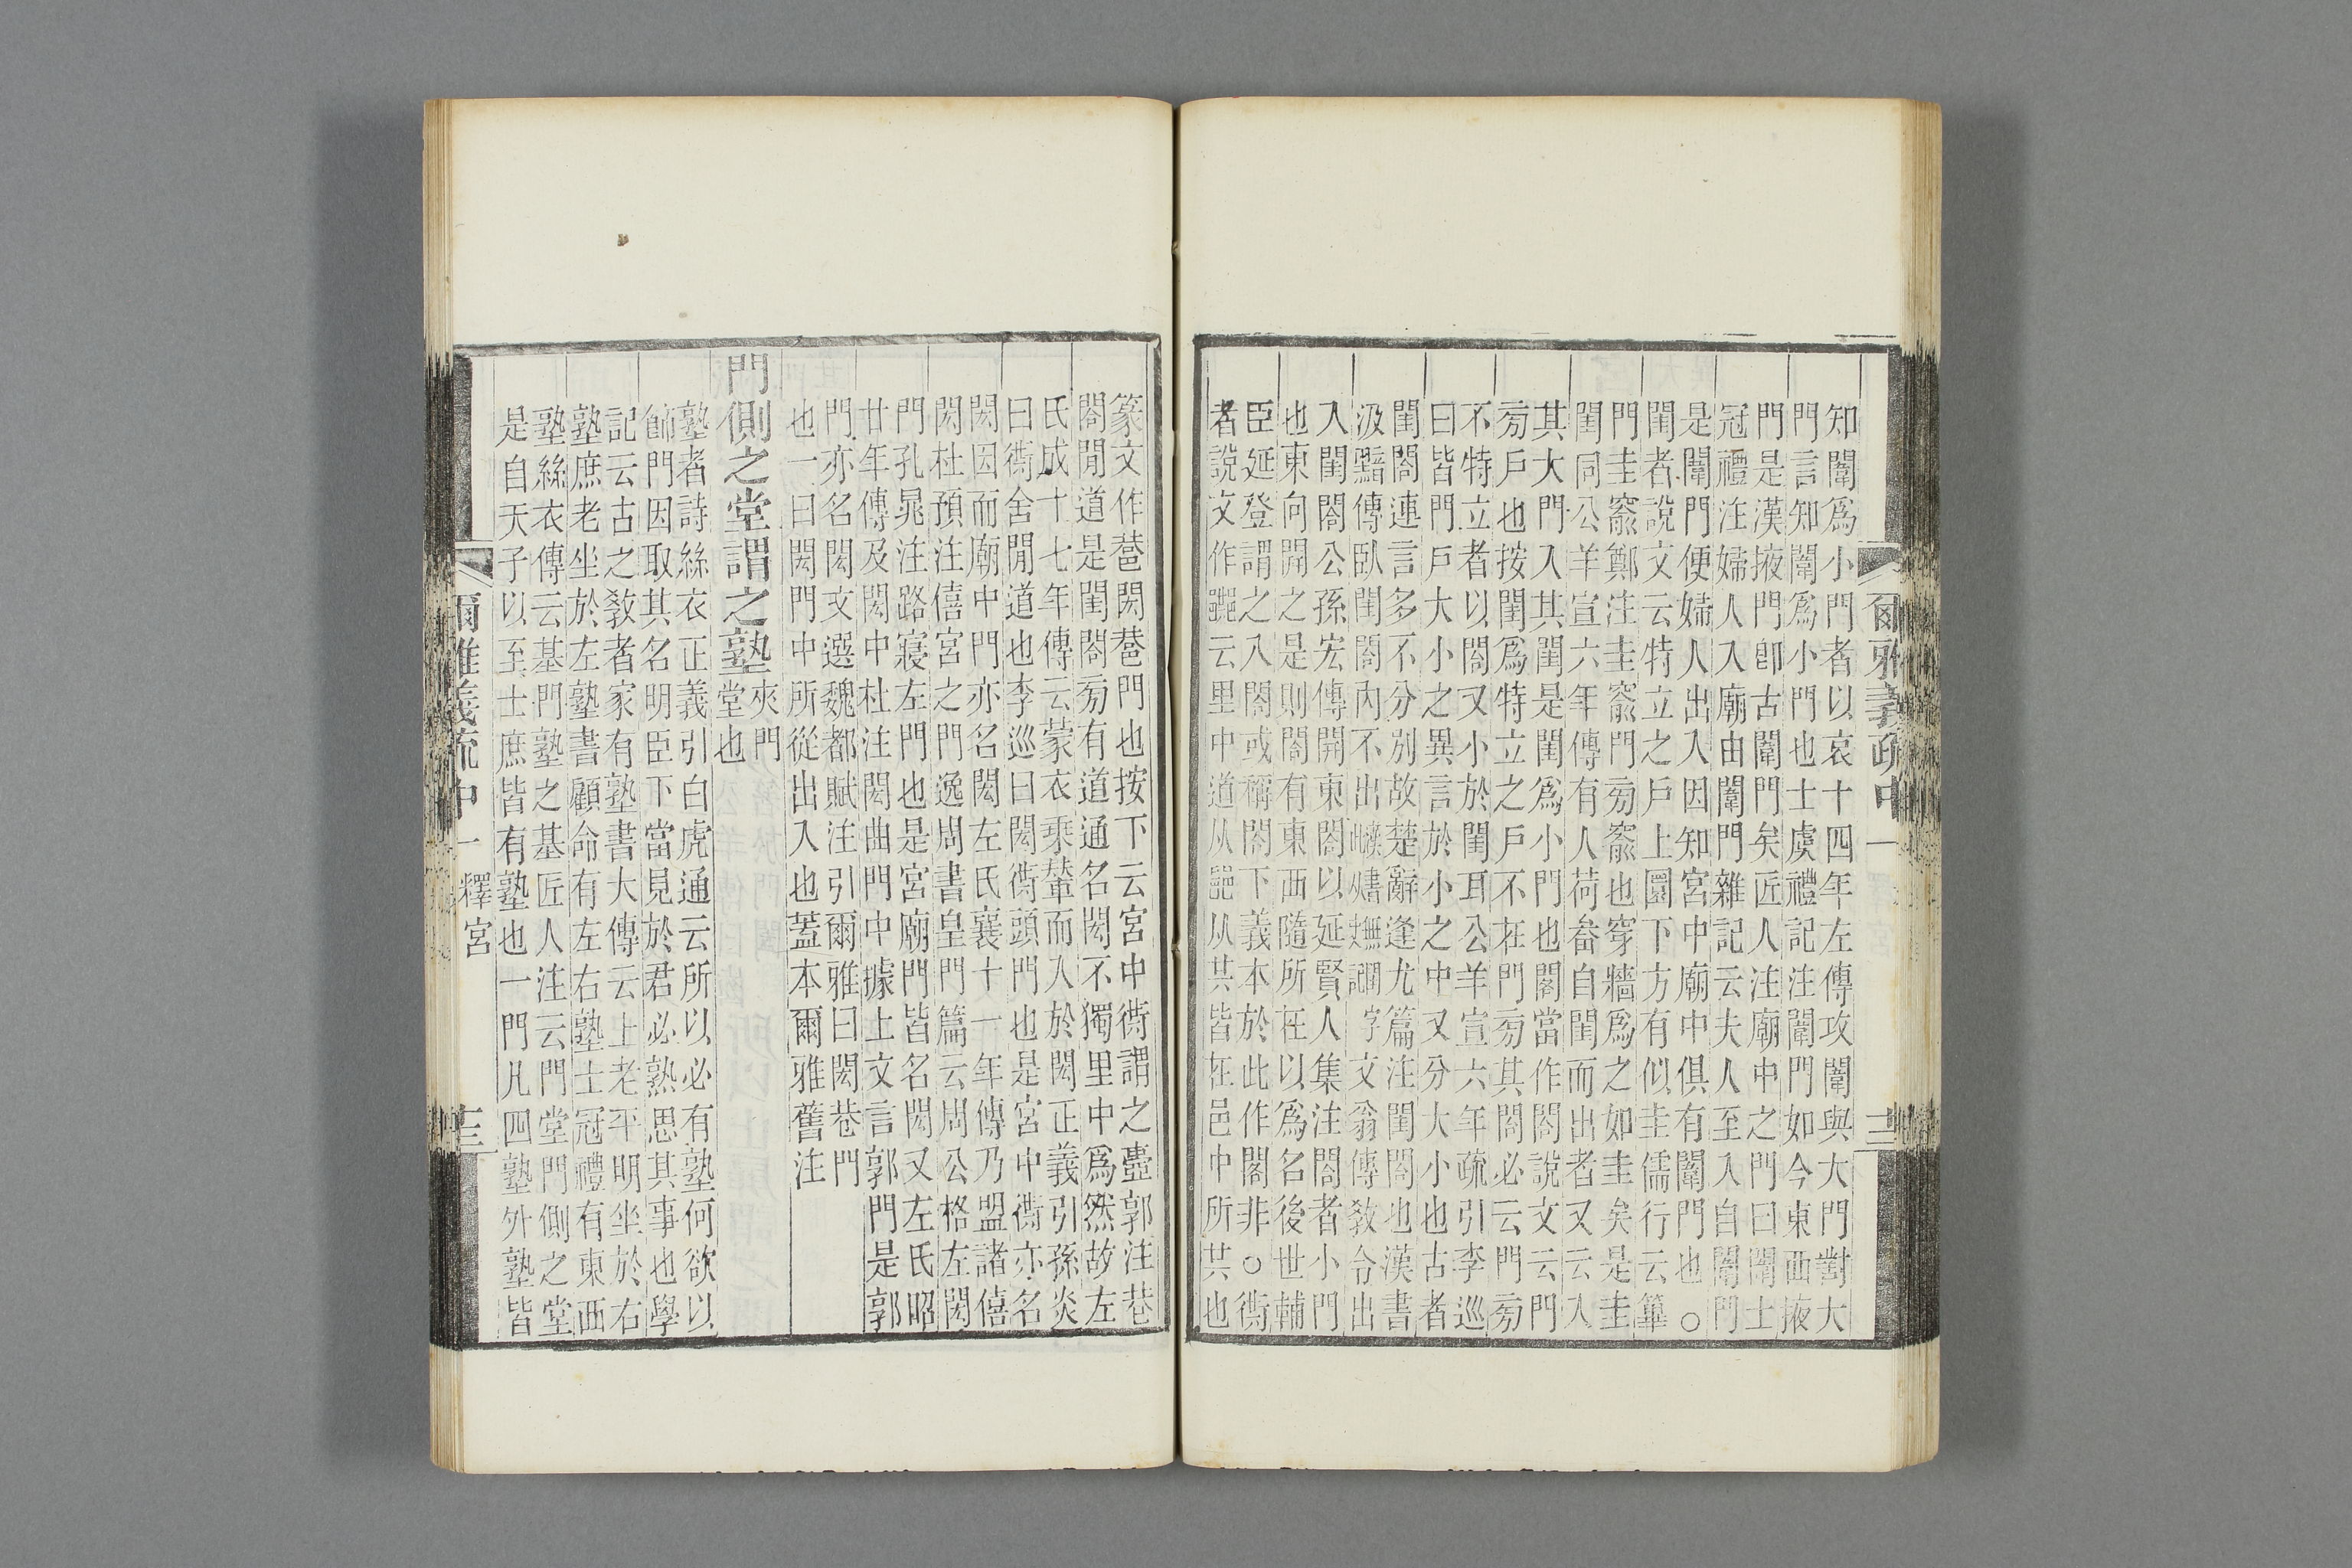 爾雅義疏中一
十二
知闈爲小門者以哀十四年左傳攻闈與大門對大
門言知闈爲小門也士虞禮記注闈門如今東西掖
門是漢掖門卽古闈門矣匠人注廟中之門曰闈士
冠禮注婦人入廟由闈門雜記云夫人至入自闈門
是闈門便婦人出入因知宮中廟中俱有闈門也○
閨者說文云特立之戶上圜下方有似圭儒行云篳
門圭窬鄭注圭窬門㫄窬也穿牆爲之如圭矣是圭
閨同公羊宣六年傳有人荷畚自閨而出者又云入
其大門入其閨是閨爲小門也閣當作閤說文云門
㫄戶也按閨爲特立之戶不在門㫄其閤必云門㫄
不特立者以閤又小於閨耳公羊宣六年疏引李巡
曰皆門戶大小之異言於小之中又分大小也古者
閨閤連言多不分別故楚辭逢尤篇注閨閤也漢書
汲黯傳臥閨閤內不出 字文翁傳敎令出
入閨閤公孫宏傳開東閤以延賢人集注閤者小門
也東向開之是則閤有東西隨所在以爲名後世輔
臣延登謂之入閤或稱閤下義本於此作閣非○衖
者說文作𨞠云里中道从𨛜从共皆在邑中所共也
篆文作巷閎巷門也按下云宮中衖謂之壼郭注巷
閤閒道是閨閤㫄有道通名閎不獨里中爲然故左
氏成十七年傳云蒙衣乘輦而入於閎正義引孫炎
曰衖舍閒道也李巡曰閎衖頭門也是宮中衖亦名
閎因而廟中門亦名閎左氏襄十一年傳乃盟諸僖
閎杜預注僖宮之門逸周書皇門篇云周公格左閎
門孔晁注路寢左門也是宮廟門皆名閎又左氏昭
廿年傳及閎中杜注閎曲門中據上文言郭門是郭
門亦名閎文選魏都賦注引爾雅曰閎巷門
也一曰閎門中所從出入也蓋本爾雅舊注
門側之堂謂之塾夾門
堂也
塾者詩絲衣正義引白虎通云所以必有塾何欲以
飾門因取其名明臣下當見於君必熟思其事也學
記云古之敎者家有塾書大傳云上老平明坐於右
塾庶老坐於左塾書顧命有左右塾士冠禮有東西
塾絲衣傳云基門塾之基匠人注云門堂門側之堂
是自天子以至士庶皆有塾也一門凡四塾外塾皆
爾雅義疏中一 釋宮
十三